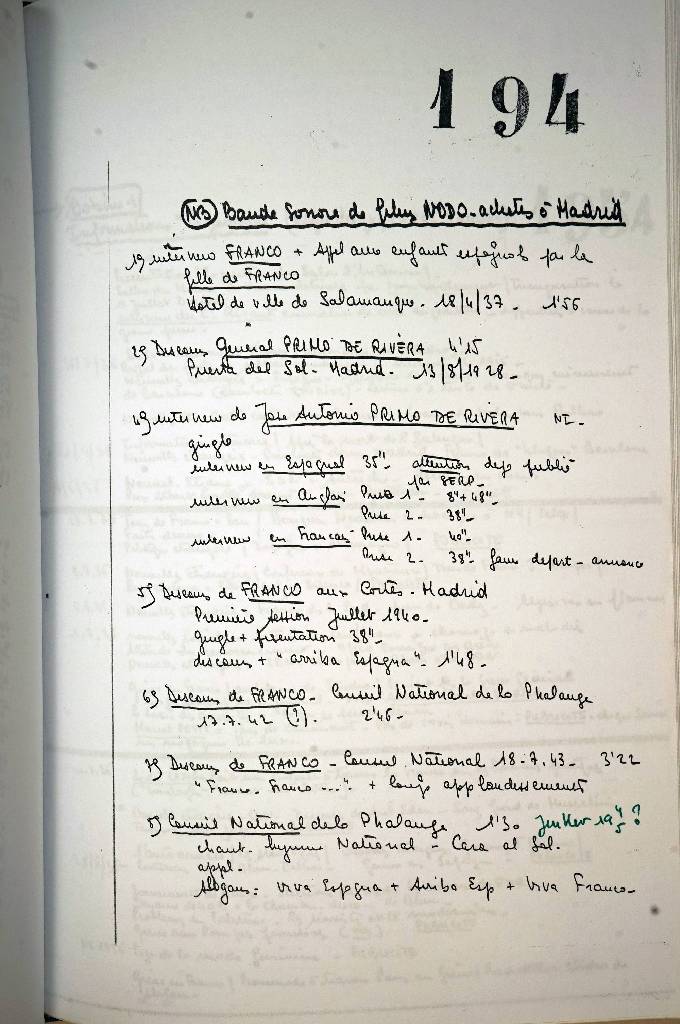 194
NB Bande Sonore de films NODO - achetés à Madrid
1°) interview FRANCO + Appel aux enfants espagnols par la
fille de FRANCO
Hotel de ville de Salamanque. 18/4/37. 1'56
2°) Discours General PRIMO DE RIVERA 4'15
Puerta del Sol - Madrid. 13/8/1928 -
4°) interview de Jose Antonio PRIMO DE RIVERA NI -
gingle
interview en Espagnol 35" attention deja publié
par SERP -
interview en Anglais Prise 1 - 8"+48"
Prise 2 - 38"
interview en Francais Prise 1 - 40"
Prise 2 - 38" faux depart - annonce
5°) Discours de FRANCO aux Cortès - Madrid
Première session Juillet 1940 -
gingle + presentation 38"
discours + "arriba Espagna" - 1'48 -
6°) Discours de FRANCO - Conseil National de la Phalange
17.7.42 (?). 2'46 -
7°) Discours de FRANCO - Conseil National 18-7.43 - 3'22
"Franco - Franco ..." + longs applaudissement
8°) Conseil National de la Phalange 1'30 Juillet 19 4/5 ?
chant - hymne National - Cara al Sol -
appl.
Slogans : Viva Espagna + Arriba Esp + Viva Franco -